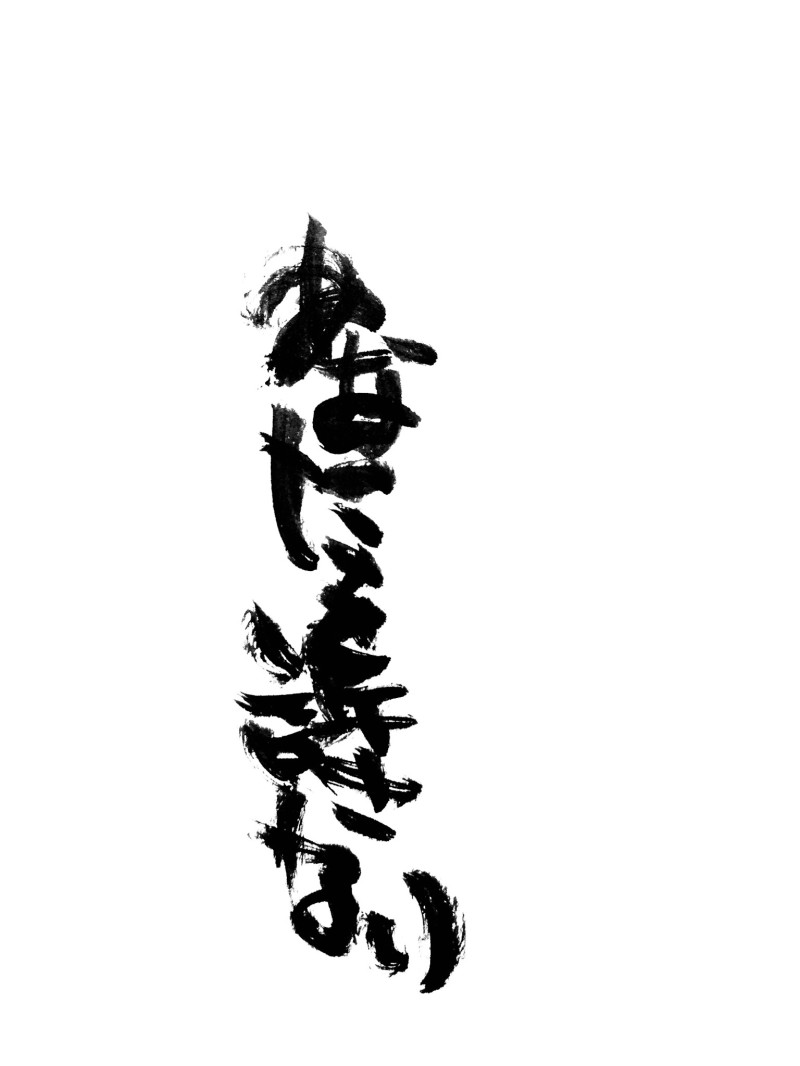 あなたを許さない